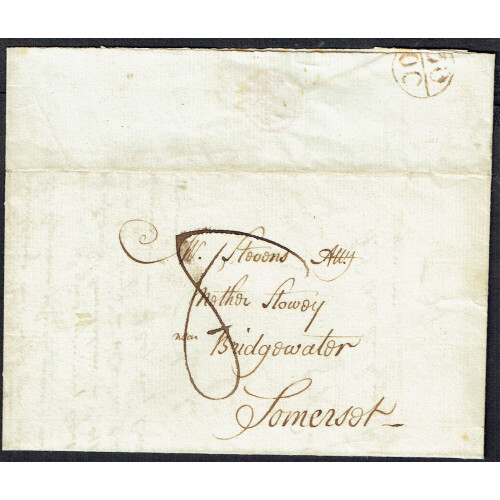 Mr. Stevens Atty
Nether Stowey
near Bridgewater
Somerset
8